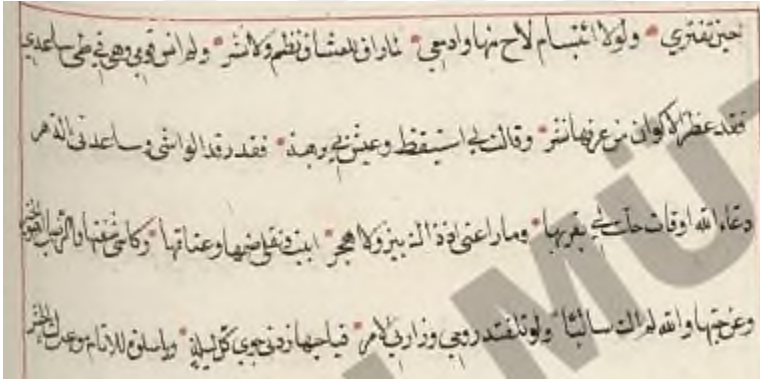 حين تفتري ولولا ابتسام لاح منها وادمعي لما راق للعشاق نظم ولا نثر ولم انس قولي وهي في طي ساعدي
فقد عطر الاكوان من عرفها نشر وقالت لي استيقظ وعش بي برهة فقد رقد الواشي وساعدني الدهر
رعا الله اوقات حلت لي بقربها وما راعني اذ ذاك بين ولا هجر ابيت ونقلي ضمها وعناقها وكاسي شفتها والرضاب
وعن حبها والله لم اك ساليا ولو تلفت روحي وزارني فيا حبها زدني جوي كل ليلة ويا سلوة الايام موعدك الحشر
MÜ